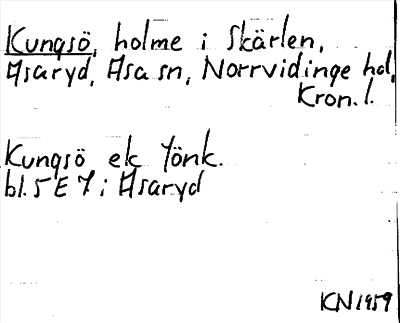 Kungsö, holme i Skärlen,
Asaryd, Asa sn, Norrvidinge hd,
Kron. l.
Kungsö ek Jönk.
bl. 5 E 7 i Asaryd
KN 1959